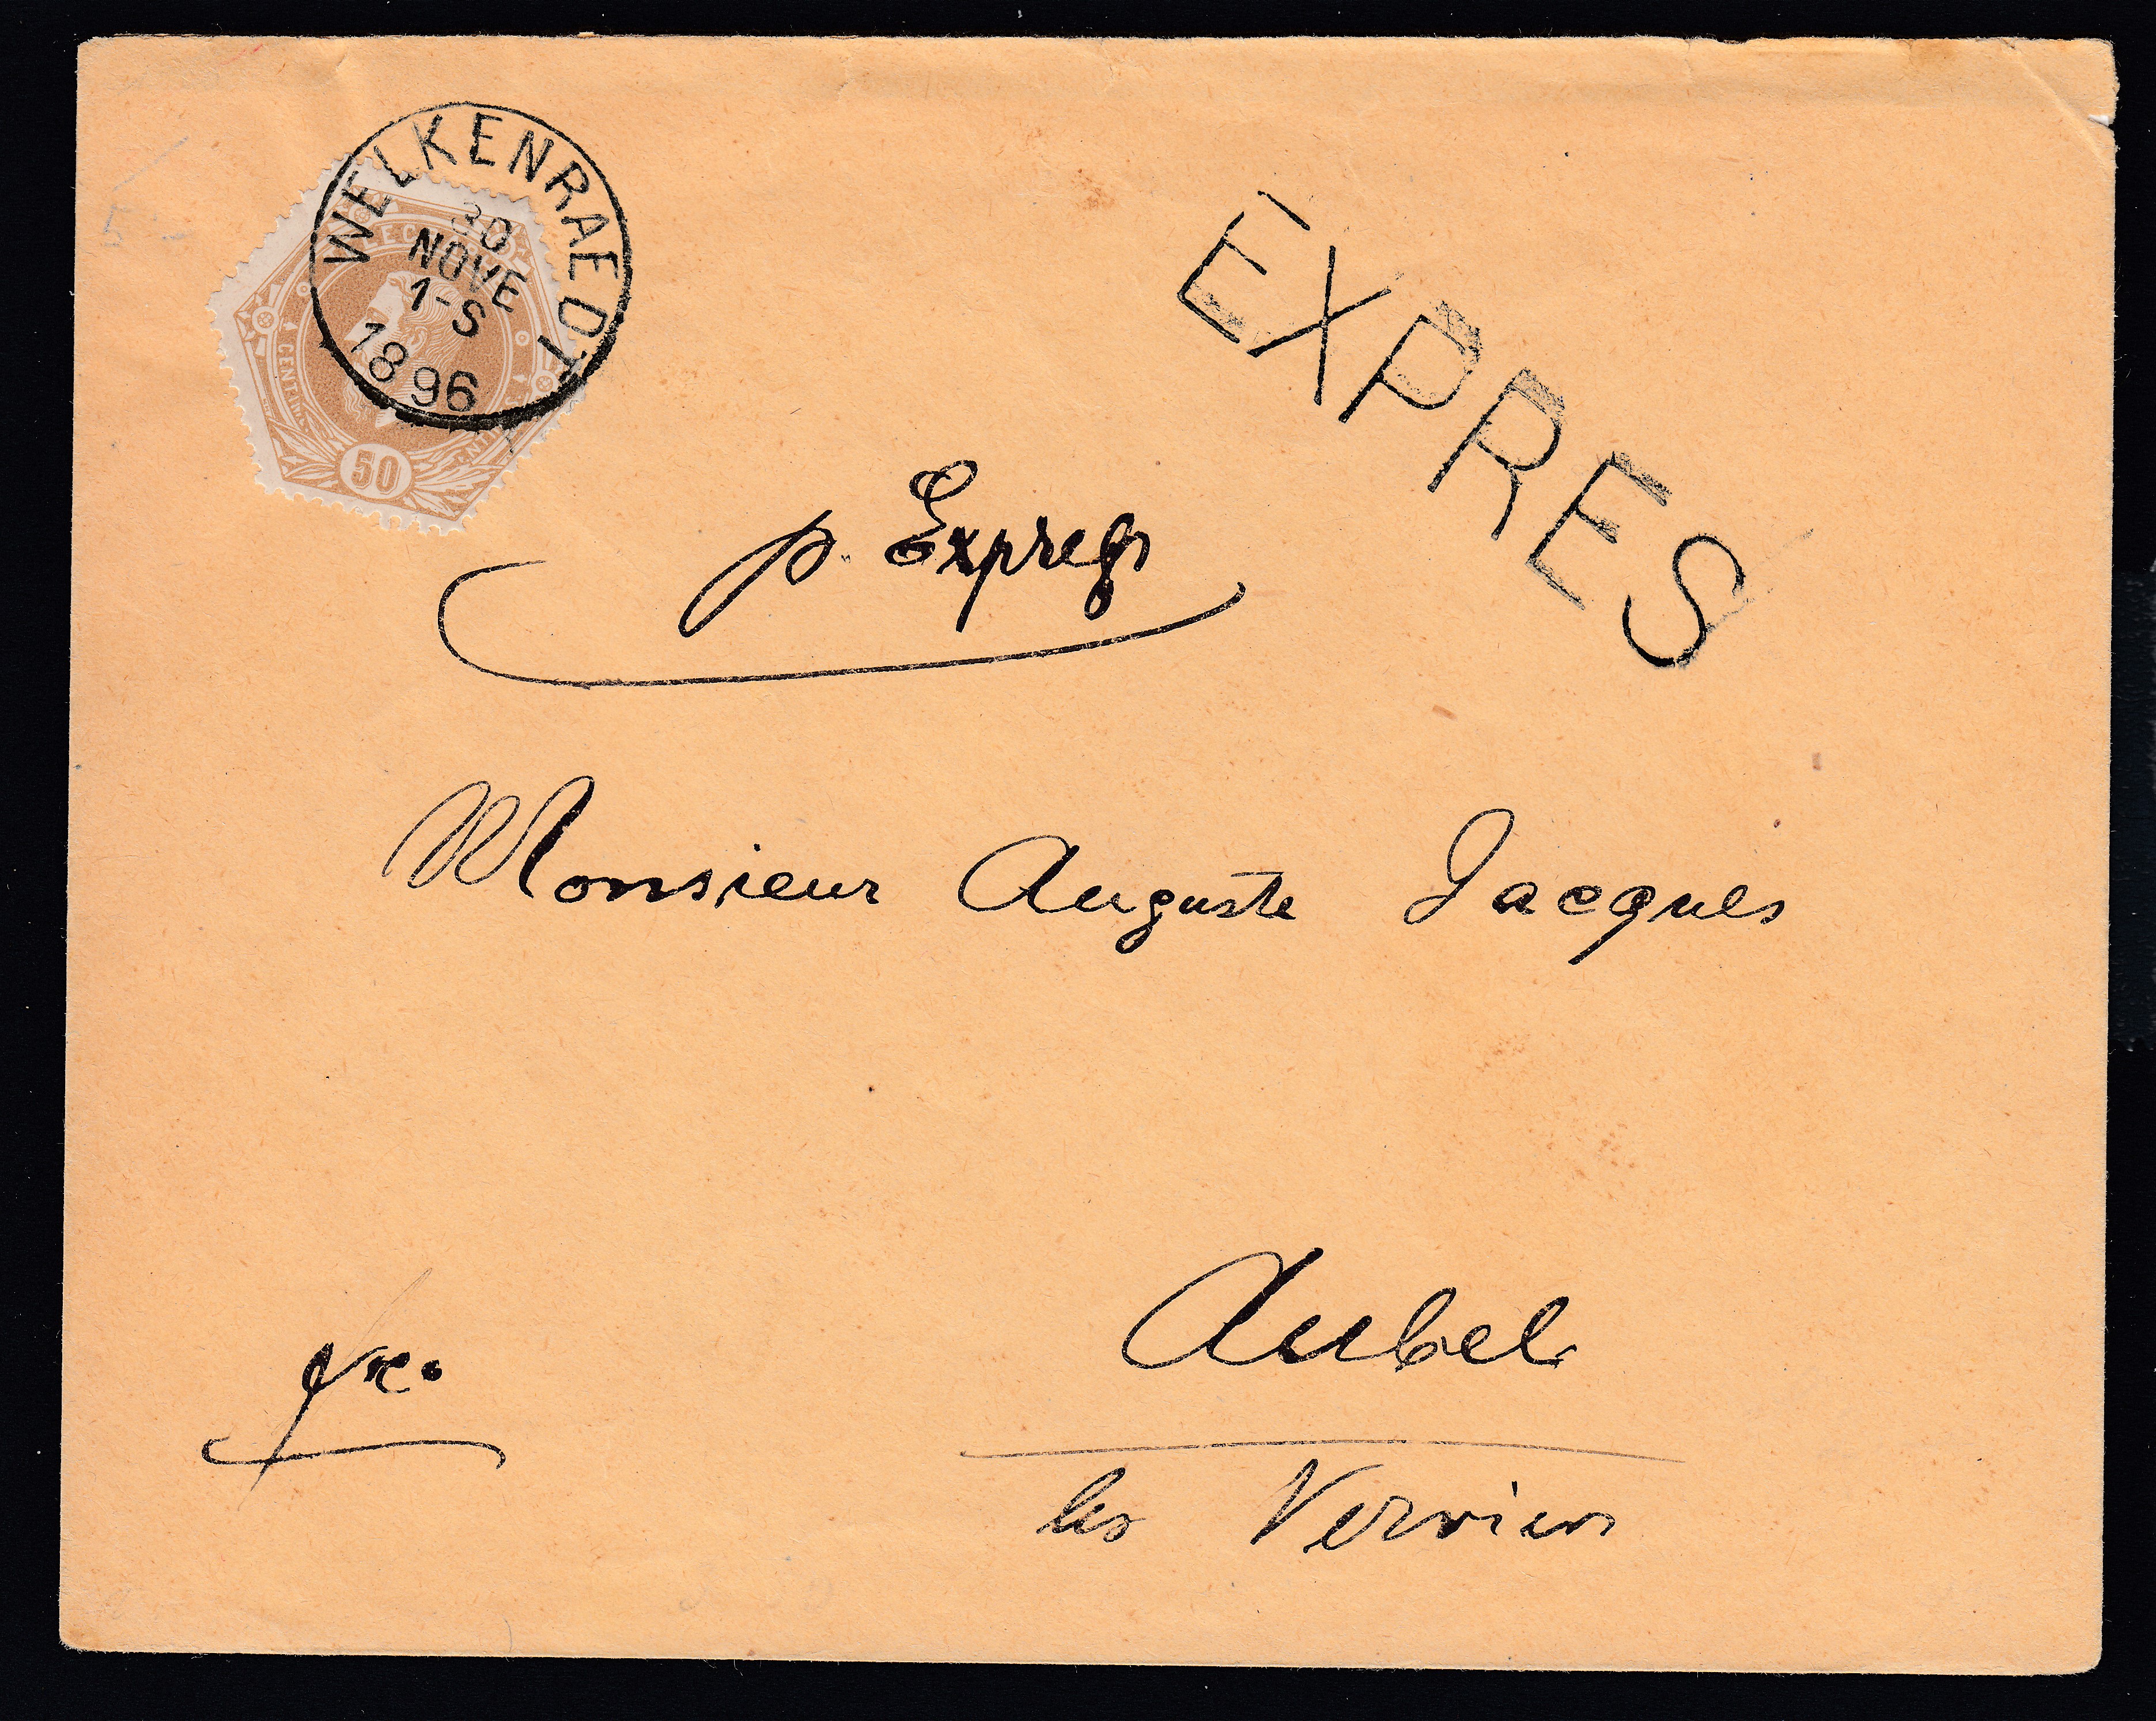 WELKENRAEDT
30
NOVE
1-S
1896
50
EXPRES
p. Express
Monsieur Auguste Jacques
Aubel
fro.
les Verviers